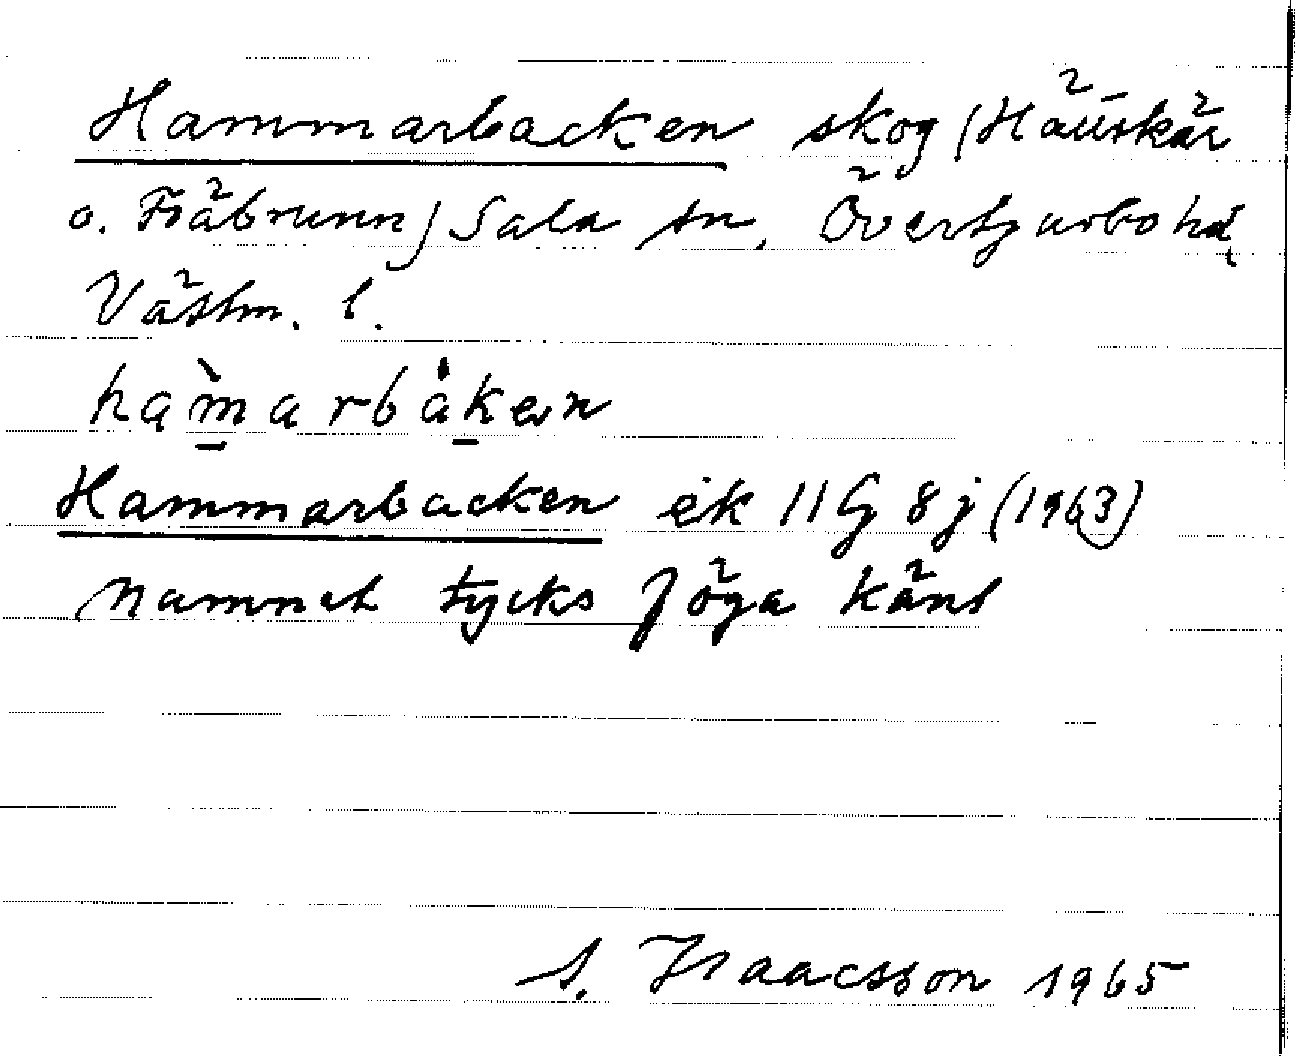 Hammarbacken skog (Häuskär
o. Träbrunn) Sala sn, Övertjurbo hd
Västm. l.
ham̀arbåken
Hammarbacken ek 11G 8j (1963)
Namnet tycks föga känt
S. Isaacsson 1965